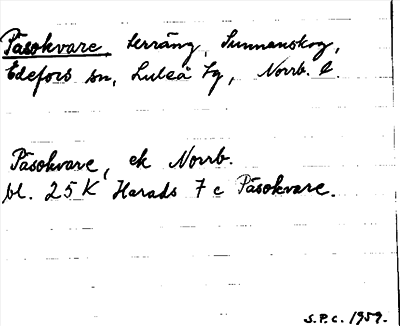 Påsokvare, terräng, Sunnanskog,
Edefors sn, Luleå tg, Norrb. l.
Påsokvare, ek Norrb.
bl. 25 K Harads 7 c Påsokvare.
S.P.C. 1959.